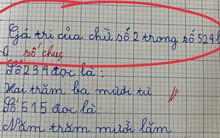 Gá trị của chữ số 2 trong số 524 l
số chục
Số 234 đọc là :
Hai trăm ba mươi tư
Số 515 đọc là:
Năm trăm mười lăm